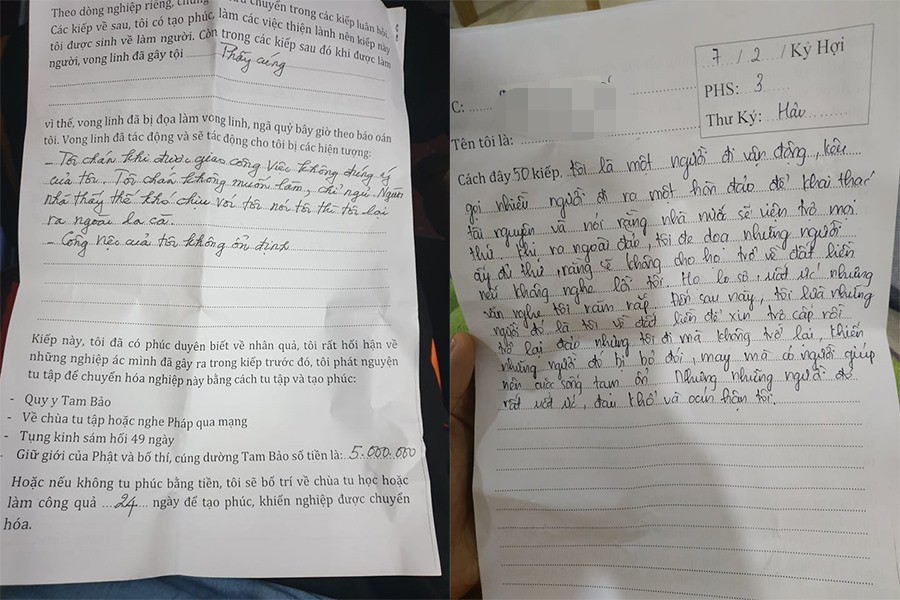 Theo dòng nghiệp riêng, chuyển trong các kiếp luân hồi.
Các kiếp về sau, tôi có tạo phúc, làm các việc thiện lành nên kiếp này
tôi được sinh về làm người. Còn trong các kiếp sau đó khi được làm
người, vong linh đã gây tội
vì thế, vong linh đã bị đọa làm vong linh, ngã quỷ bây giờ theo báo oán
tôi. Vong linh đã tác động và sẽ tác động cho tôi bị các hiện tượng:
- Tôi chán khi được giao công việc không đúng ý
của tôi. Tôi chán không muốn làm, chỉ ngủ. Người
nhà thấy thế khó chịu với tôi nói tôi thì tôi lại
ra ngoài la cà.
- Công việc của tôi không ổn định
Kiếp này, tôi đã có phúc duyên biết về nhân quả, tôi rất hối hận về
những nghiệp ác mình đã gây ra trong kiếp trước đó, tôi phát nguyện
tu tập để chuyển hóa nghiệp này bằng cách tu tập và tạo phúc:
- Quy y Tam Bảo
- Về chùa tu tập hoặc nghe Pháp qua mạng
- Tụng kinh sám hối 49 ngày
- Giữ giới của Phật và bố thí, cúng dường Tam Bảo số tiền là: 5.000.000
Hoặc nếu không tu phúc bằng tiền, tôi sẽ bố trí về chùa tu học hoặc
làm công quả ...24... ngày để tạo phúc, khiến nghiệp được chuyển
hóa.
7 / 2 / Kỷ Hợi
PHS: 3
Thư Ký: Hậu
C:
Tên tôi là:
Cách đây 50 kiếp, tôi là một người đi vận động, kêu
gọi nhiều người đi ra một hòn đảo để khai thác
tài nguyên và nói rằng nhà nước sẽ viện trợ mọi
thứ. Khi ra ngoài đảo, tôi đe dọa những người
ấy đủ thứ, rằng sẽ không cho họ trở về đất liền
nếu không nghe lời tôi. Họ lo sợ, uất ức nhưng
vẫn nghe tôi răm rắp. Đến sau này, tôi lừa những
người đó là tôi về đất liền để xin trợ cấp rồi
trở lại đảo nhưng tôi đi mà không trở lại, khiến
những người đó bị bỏ đói, may mà có người giúp
nên cuộc sống tạm ổn. Nhưng những người đó
rất uất ức, đau khổ và oán hận tôi.